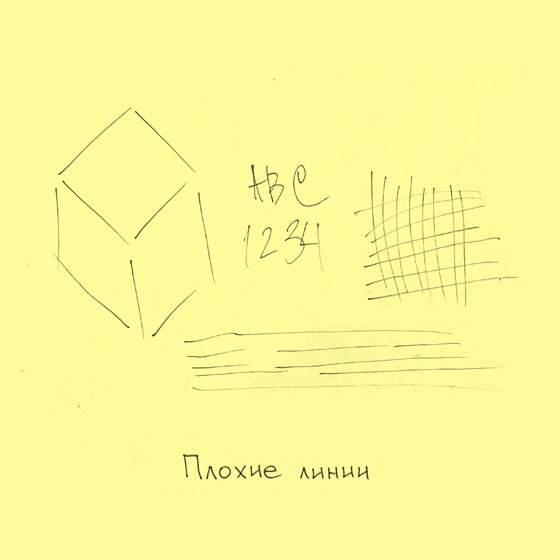 ABC
1234
Плохие линии